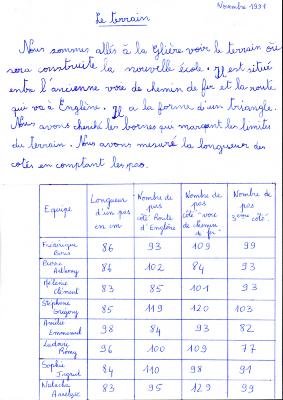 Novembre 1991
Le terrain
Nous sommes allés à la Glière voir le terrain où
sera construite la nouvelle école. Il est situé
entre l'ancienne voie de chemin de fer et la route
qui va à Englène. Il a la forme d'un triangle.
Nous avons cherché les bornes qui marquent les limites
du terrain. Nous avons mesuré la longueur des
côtés en comptant les pas.
Equipe | Longueur d'un pas en cm | Nombre de pas côté Route d'Englène | Nombre de pas côté "voie de chemin de fer" | Nombre de pas 3ème côté
Frédérique Boris | 86 | 93 | 109 | 99
Pierre Anthony | 86 | 102 | 84 | 93
Mélanie Clément | 83 | 85 | 101 | 93
Stéphane Grégory | 85 | 119 | 120 | 103
Amélie Emmanuel | 98 | 84 | 93 | 82
Ludovic Rémy | 96 | 100 | 109 | 77
Sophie Ingrid | 84 | 110 | 98 | 91
Natacha | 83 | 95 | 129 | 99